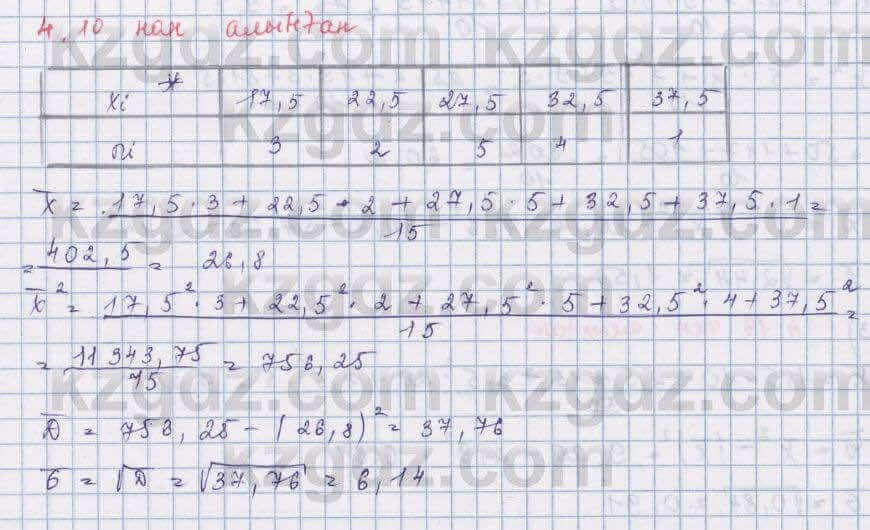 4.10 нан алынған
xi* 17,5 22,5 27,5 32,5 37,5
ni 3 2 5 4 1
x̄ = 17,5·3 + 22,5·2 + 27,5·5 + 32,5 + 37,5·1 =
15
= 402,5 = 26,8
x̄² = 17,5²·3 + 22,5²·2 + 27,5²·5 + 32,5²·4 + 37,5² =
15
= 11343,75 = 756,25
15
D = 756,25 - (26,8)² = 37,76
σ = √D = √37,76 = 6,14
kzgdz.com